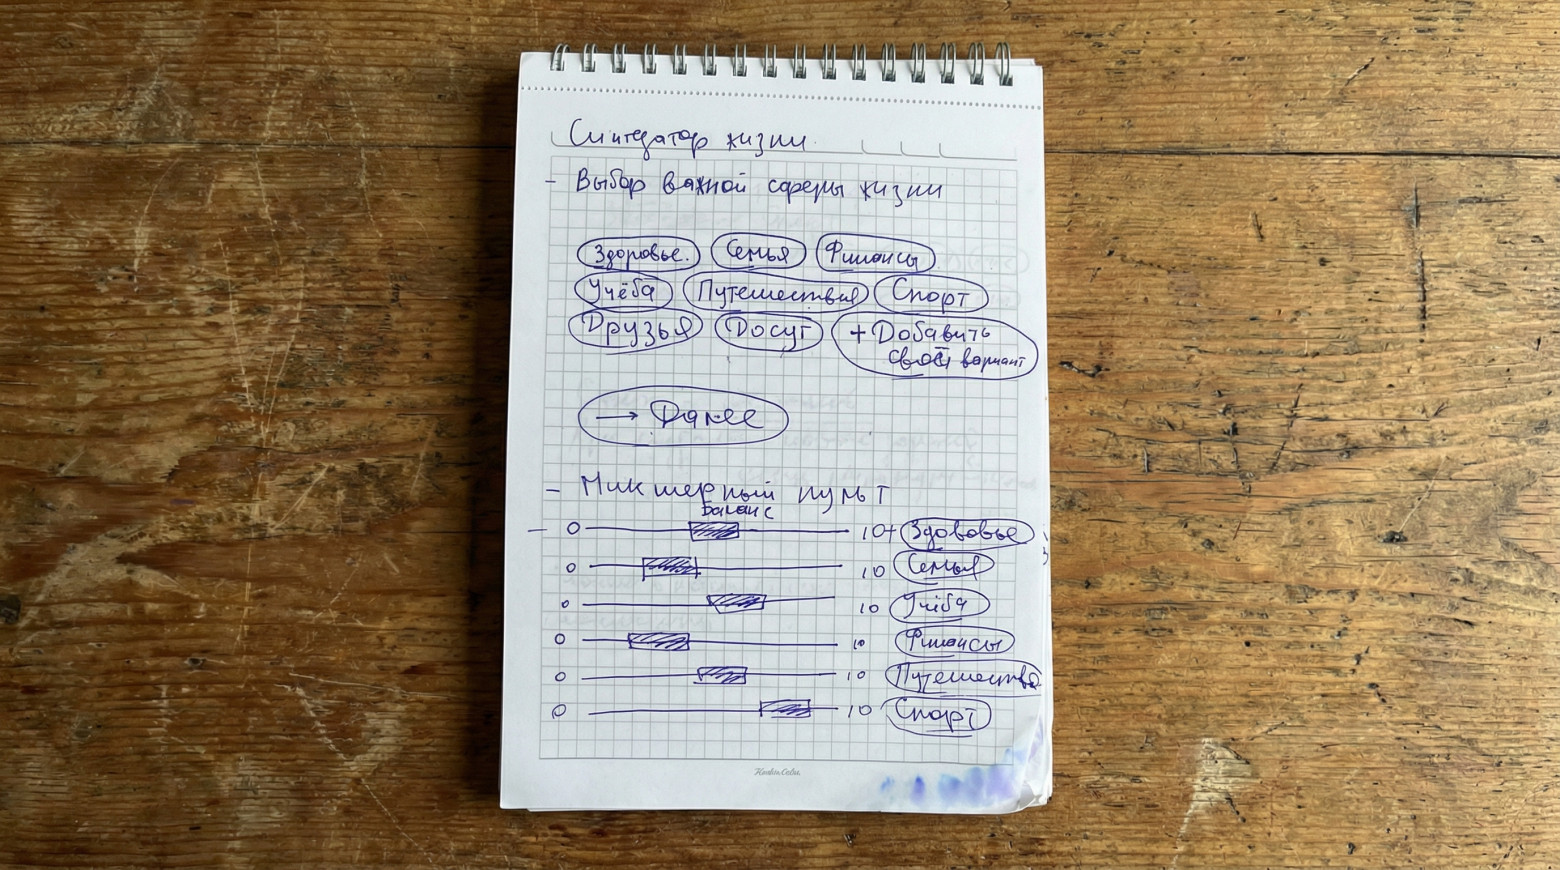 Синтезатор жизни.
- Выбор важной сферы жизни
Здоровье. Семья Финансы
Учёба Путешествия Спорт
Друзья Досуг + Добавить
свой вариант
→ Далее
- Микшерный пульт
Баланс
- 0 10+ Здововье
0 10 Семья
0 10 Учёба
0 10 Финансы
0 10 Путешества
0 10 Спорт